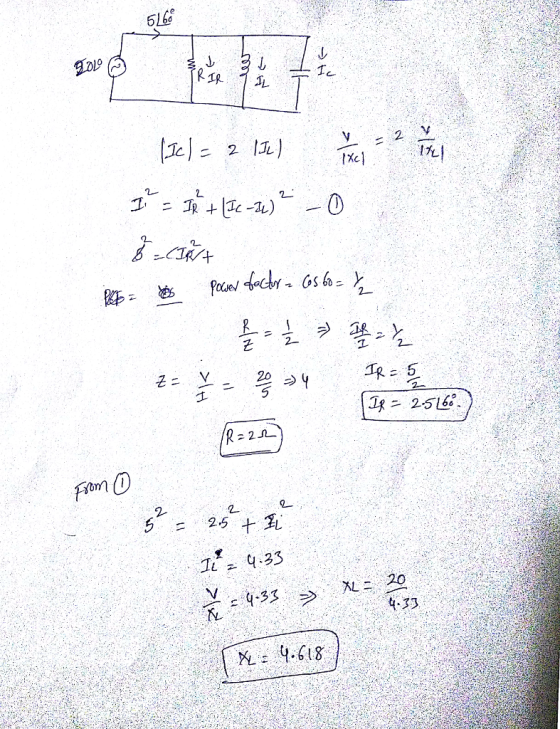 5∠60°
20∠0
R ↓ IR ↓ IL ↓ Ic
|Ic| = 2 |IL| V/|Xc| = 2 V/|XL|
I² = IR² + (Ic-IL)² — ①
= (IR² +
Power factor = Cos 60 = 1/2
R/Z = 1/2 ⇒ IR/I = 1/2
Z = V/I = 20/5 ⇒ 4 IR = 5/2
IR = 2.5∠60°.
R = 2Ω
From ①
5² = 2.5² + IL²
IL = 4.33
V/XL = 4.33 ⇒ XL = 20/4.33
XL = 4.618